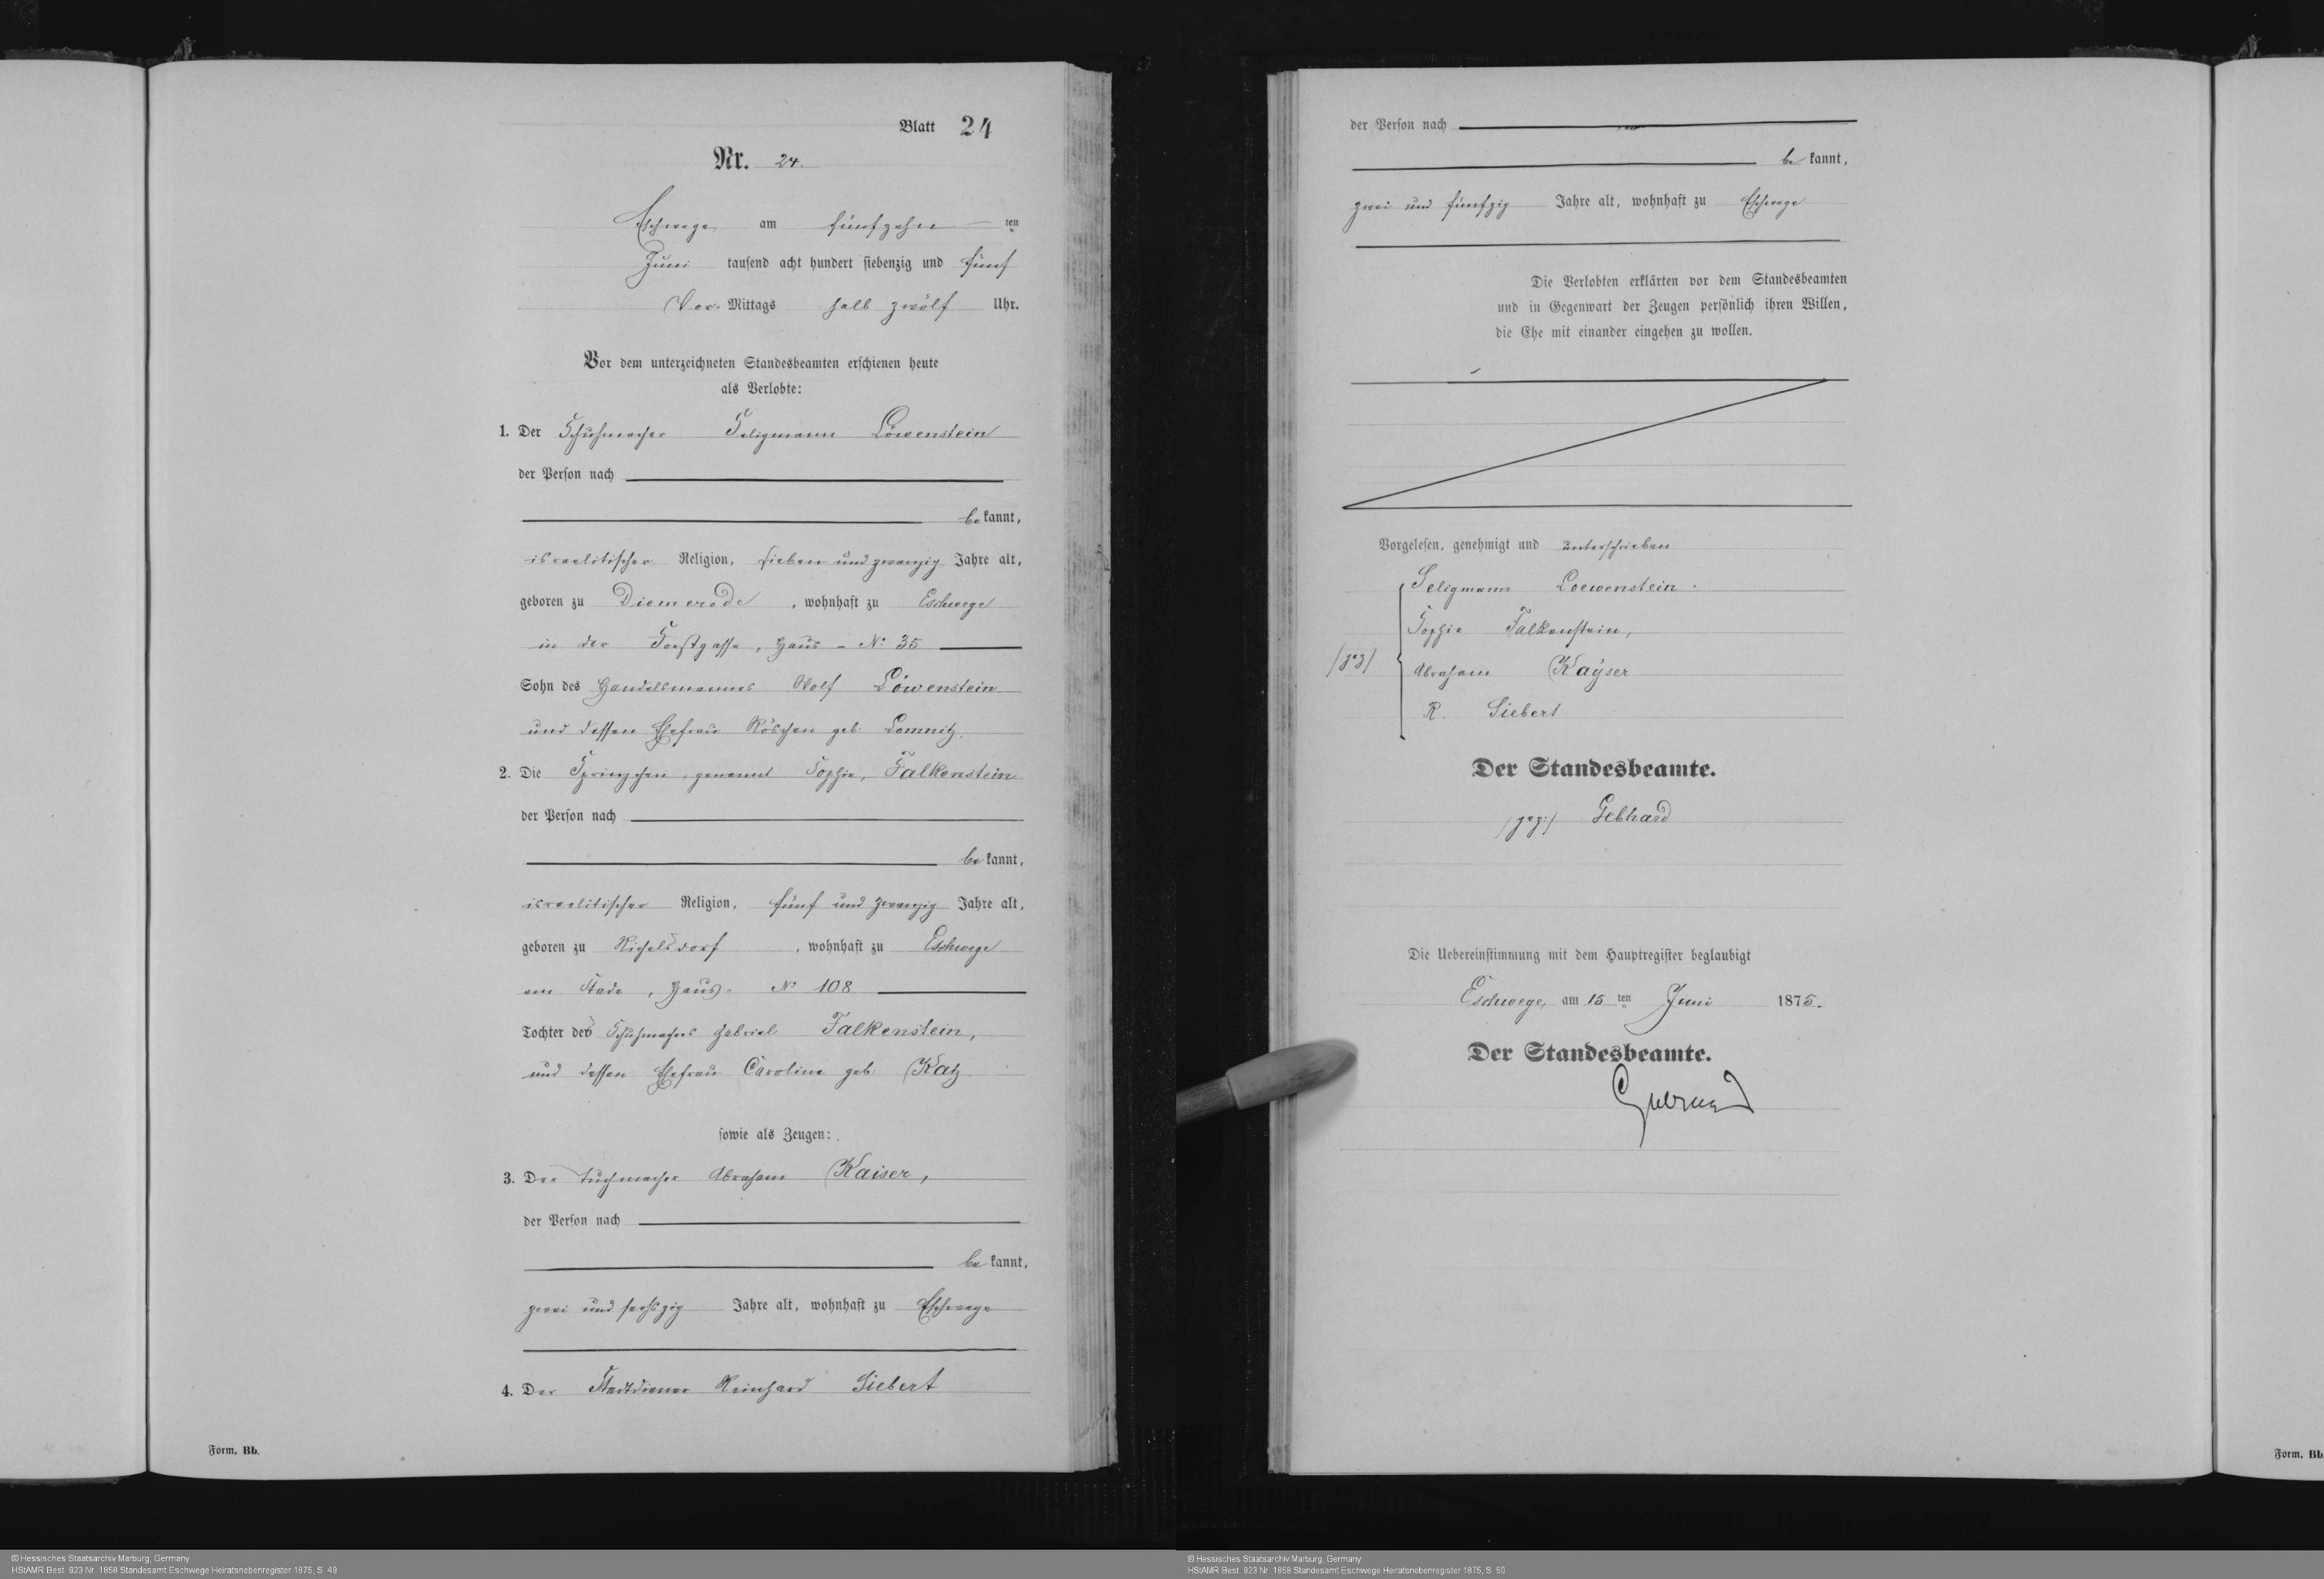 Blatt 24
Nr. 24.
Eschwege am fünfzehn ten
Juni tausend acht hundert siebenzig und fünf
Vor Mittags halb zwölf Uhr.
Vor dem unterzeichneten Standesbeamten erschienen heute
als Verlobte:
1. Der Schuhmacher Seligmann Löwenstein
der Person nach
be kannt,
israelitischer Religion, sieben und zwanzig Jahre alt,
geboren zu Diemerode, wohnhaft zu Eschwege
in der Forstgasse, Haus-No 35
Sohn des Handelsmannes Wolf Löwenstein
und dessen Ehefrau Röschen geb. Lomnitz.
2. Die Sprinzchen, genannt Sophie, Falkenstein
der Person nach
be kannt,
israelitischer Religion, fünf und zwanzig Jahre alt,
geboren zu Richelsdorf, wohnhaft zu Eschwege
am Stade, Haus-No 108
Tochter des Schuhmachers Gabriel Falkenstein,
und dessen Ehefrau Caroline geb. Katz
sowie als Zeugen:
3. Der Tuchmacher Abraham Kaiser,
der Person nach
be kannt,
zwei und sechszig Jahre alt, wohnhaft zu Eschwege
4. Der Stadtdiener Reinhard Siebert
Form. Bb.
der Person nach
be kannt,
zwei und fünfzig Jahre alt, wohnhaft zu Eschwege
Die Verlobten erklärten vor dem Standesbeamten
und in Gegenwart der Zeugen persönlich ihren Willen,
die Ehe mit einander eingehen zu wollen.
Vorgelesen, genehmigt und unterschrieben
Seligmann Loewenstein.
Sophie Falkenstein,
(gez) Abraham Kayser
R. Siebert
Der Standesbeamte.
(gez:) Gebhard
Die Uebereinstimmung mit dem Hauptregister beglaubigt
Eschwege, am 15 ten Juni 1875.
Der Standesbeamte.
Gebhard
Form. Bb
© Hessisches Staatsarchiv Marburg, Germany
HStAMR Best. 923 Nr. 1858 Standesamt Eschwege Heiratsnebenregister 1875, S. 49
© Hessisches Staatsarchiv Marburg, Germany
HStAMR Best. 923 Nr. 1858 Standesamt Eschwege Heiratsnebenregister 1875, S. 50